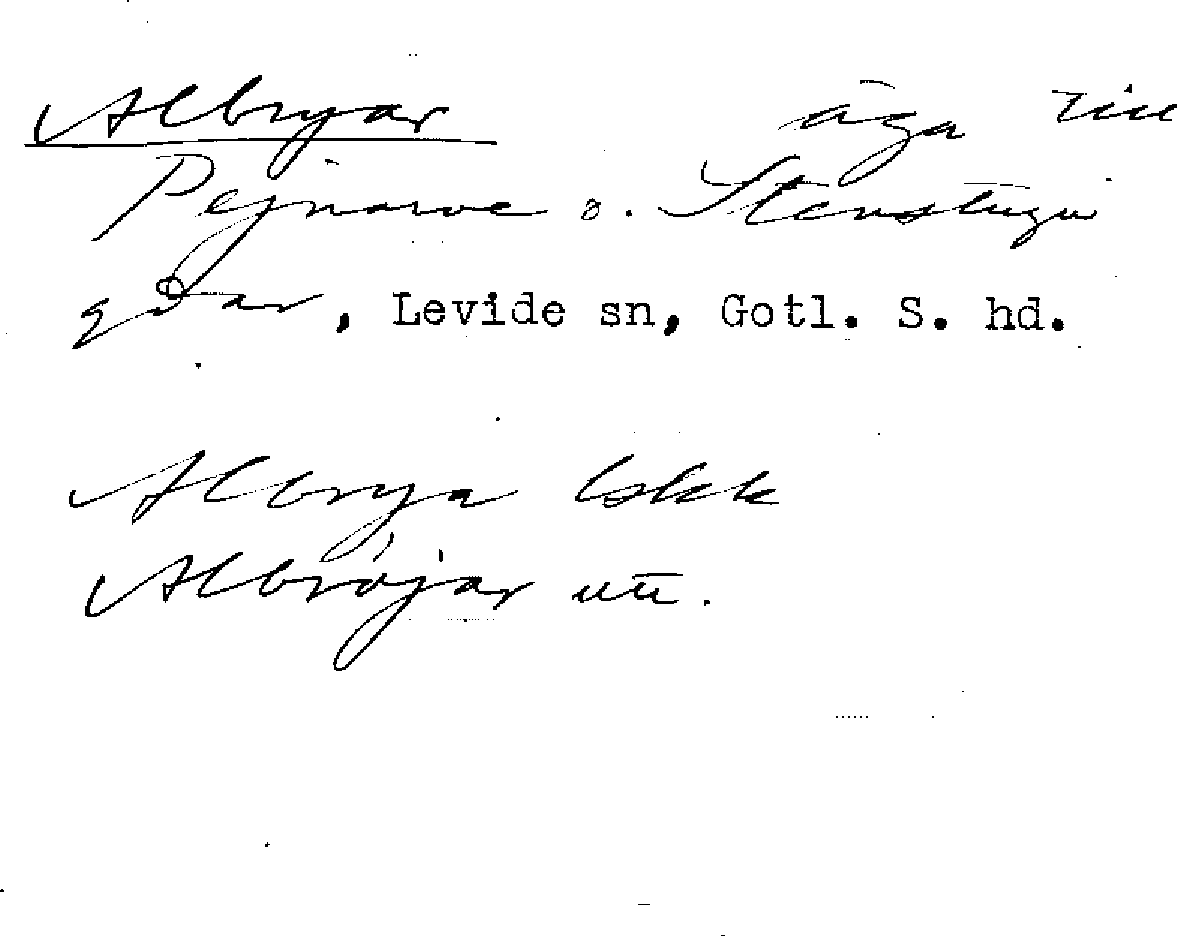 Albryar äga till
Pejnarve o. Stenstugu
gdar, Levide sn, Gotl. S. hd.
Albrya lskk
Albröjar utt.